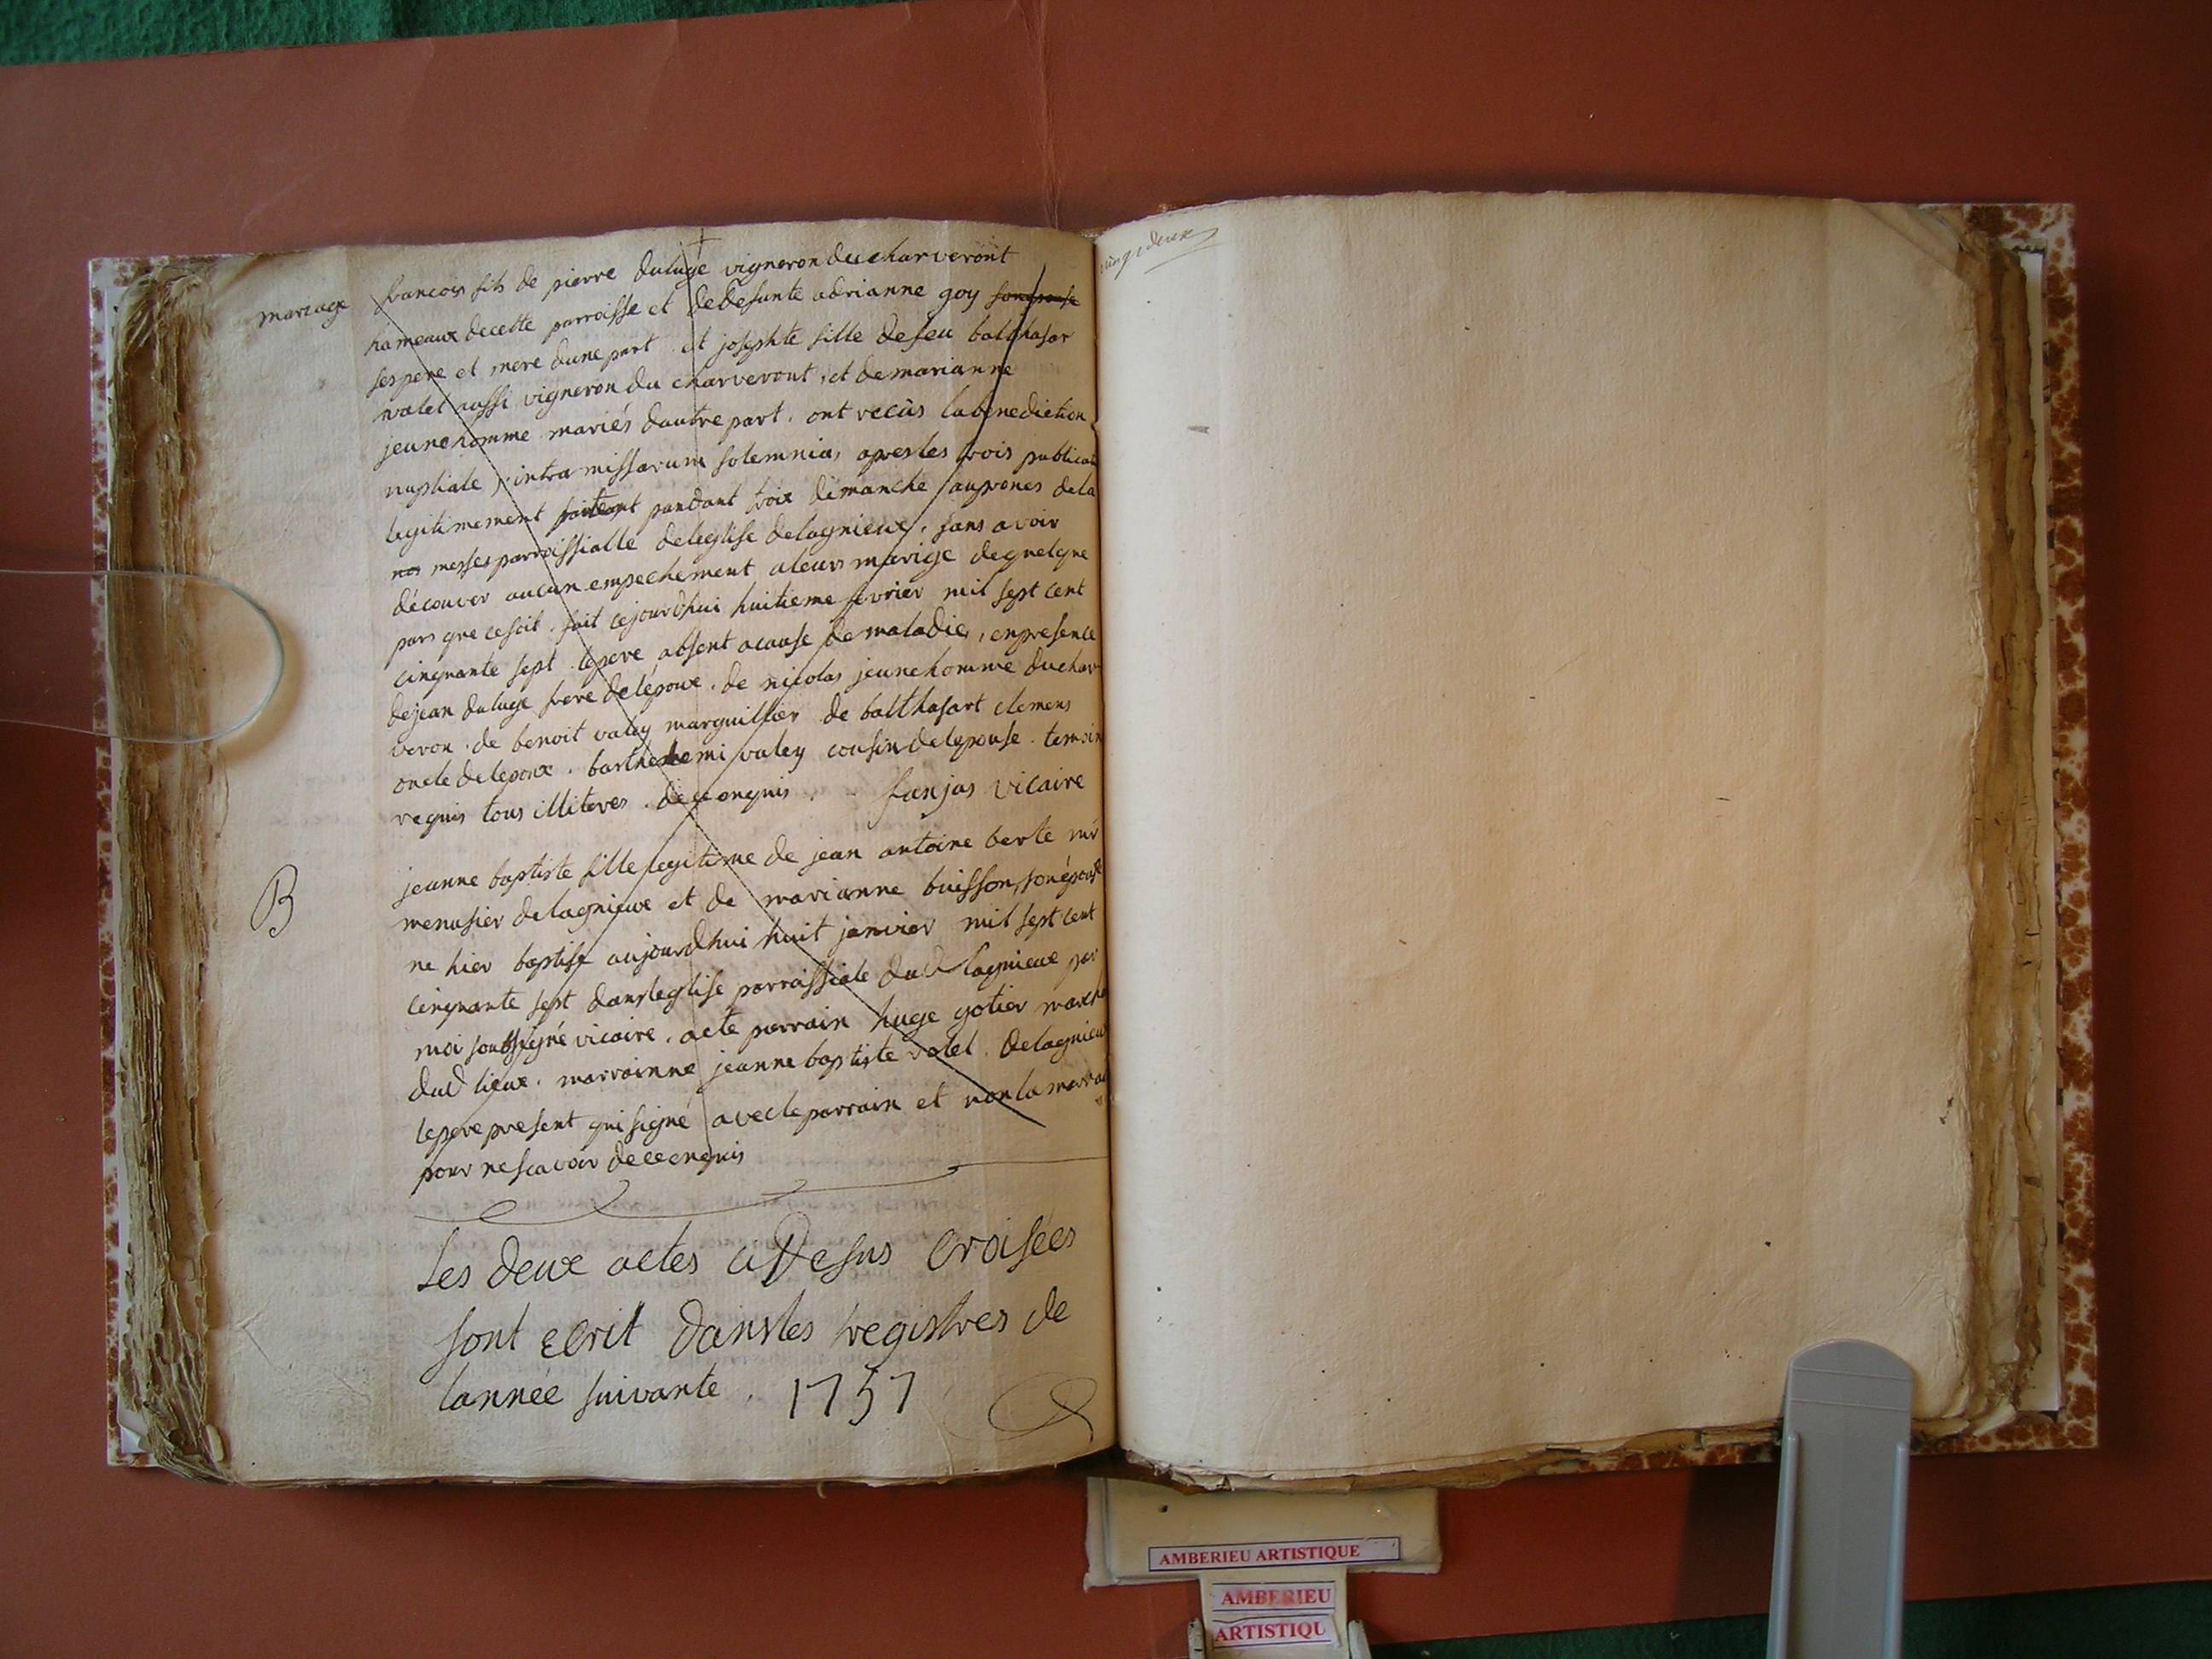 mariage
francois fils de pierre duluge vigneron du charveront
hameaux de cette parroisse et de defunte adrianne goy son epouse
ses pere et mere dune part et josephte fille de feu balthasar
valet aussi vigneron du charveront, et de marianne
jeunehomme mariés dautre part. ont recùs la benediction
nuptiale, intra missarum solemnia, apres les trois publicat
legitimement faites pandant trois dimanche au prones de la
nos messes parroissialle de leglise de lagnieux, sans avoir
découver aucun empechement a leurs marige de quelque
pars que ce soit. fait cejourdhui huitieme fevrier mil sept cent
cinquante sept. le pere absent a cause de maladie, en presence
de jean duluge frere de lépoux. de nicolas jeunehomme du char
veron. de benoit valey marguillier de balthasart clemens
oncle de lepoux. barthelemi valey cousin de lepouse. temoin
requis tous illiteres. de ce enquis. fanjas vicaire
B
jeanne baptiste fille legitime de jean antoine berte mr
menusier de lagnieux et de marianne buisson, son épouse
ne hier baptise aujourdhui huit janvier mil sept cent
cinquante sept dans leglise parroissiale dud lagnieux par
moi soussigné vicaire. a ete parrain huge gotier march
dud lieux. marrainne jeanne baptiste valel. de lagnieu
le pere present qui signé avec le parrain et non la marrai
pour ne scavoir de ce enquis
Les deux actes ci desus croisées
sont ecrit dans les registres de
lannée suivante. 1757
vingt deux
AMBERIEU ARTISTIQUE
AMBERIEU
ARTISTIQU